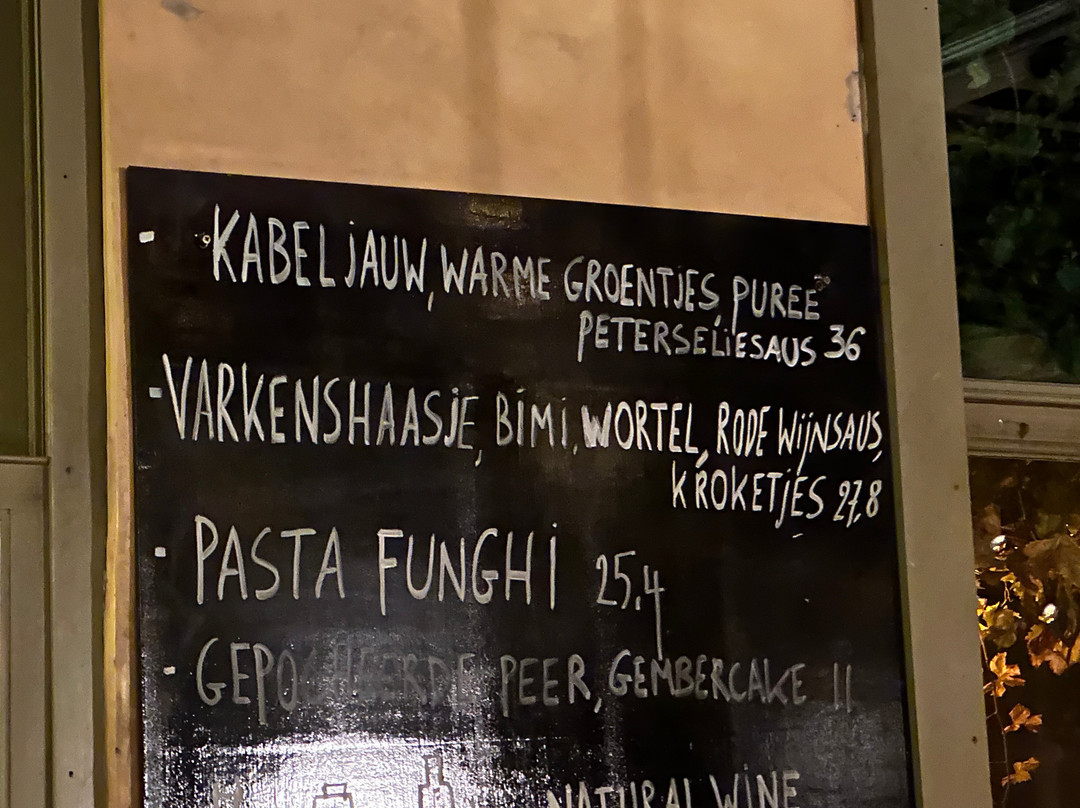 - KABELJAUW, WARME GROENTJES, PUREE
PETERSELIESAUS 36
- VARKENSHAASJE, BIMI, WORTEL, RODE WIJNSAUS,
KROKETJES 27,8
- PASTA FUNGHI 25,4
- GEPOCHEERDE PEER, GEMBERCAKE 11
NATURAL WINE